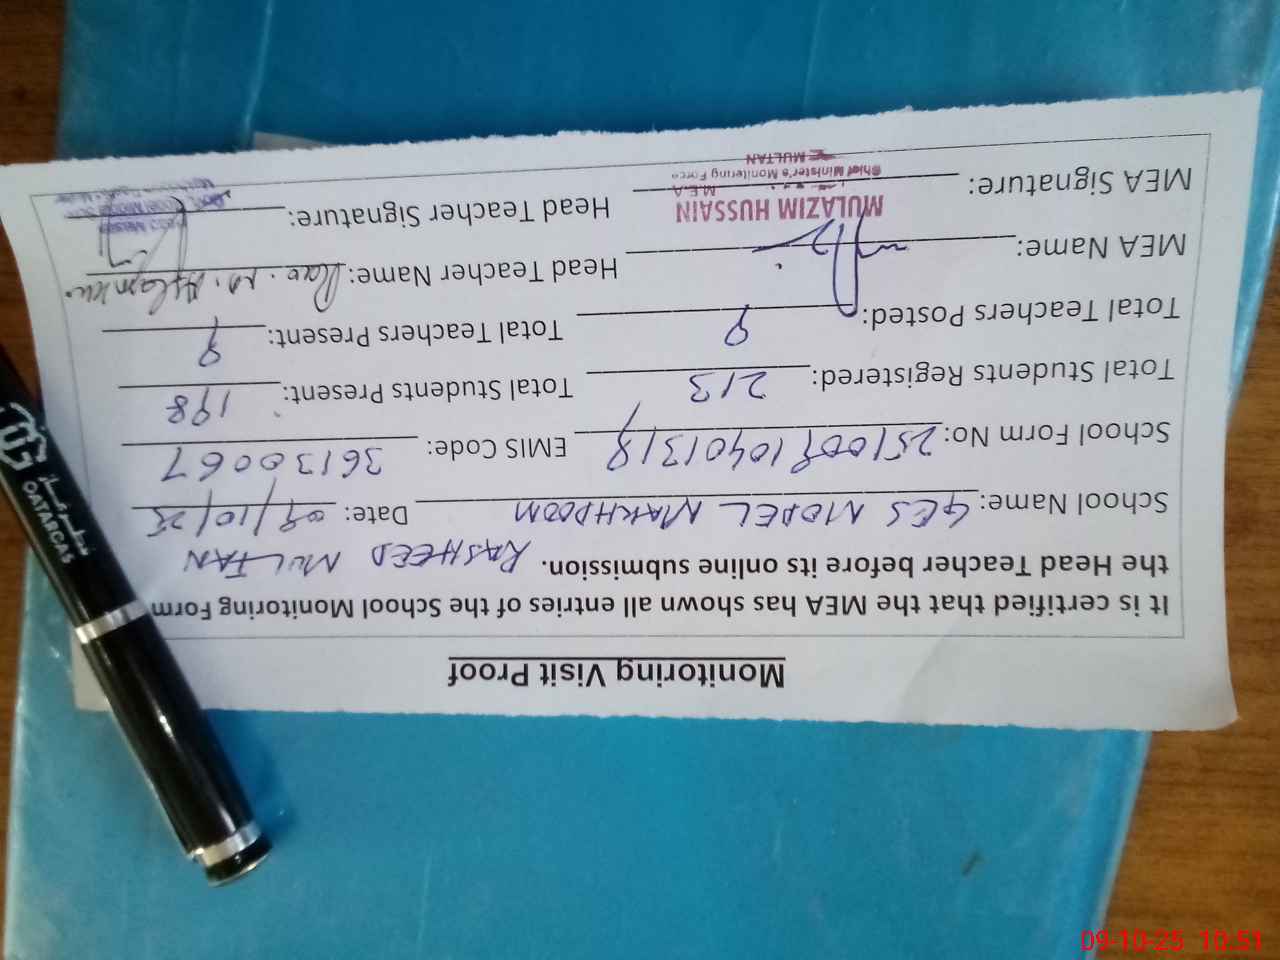 Monitoring Visit Proof
It is certified that the MEA has shown all entries of the School Monitoring Form
the Head Teacher before its online submission. RASHEED MULTAN
School Name: GES MODEL MAKHDOOM Date: 09/10/25
School Form No: 25100910401318 EMIS Code: 36130067
Total Students Registered: 213 Total Students Present: 198
Total Teachers Posted: 9 Total Teachers Present: 9
MEA Name: Head Teacher Name: Rao. M. Aslam
MULAZIM HUSSAIN
MEA Signature: M.E.A Head Teacher Signature:
Chief Minister's Monitoring Force
MULTAN
QATARGAS
09-10-25 10:51